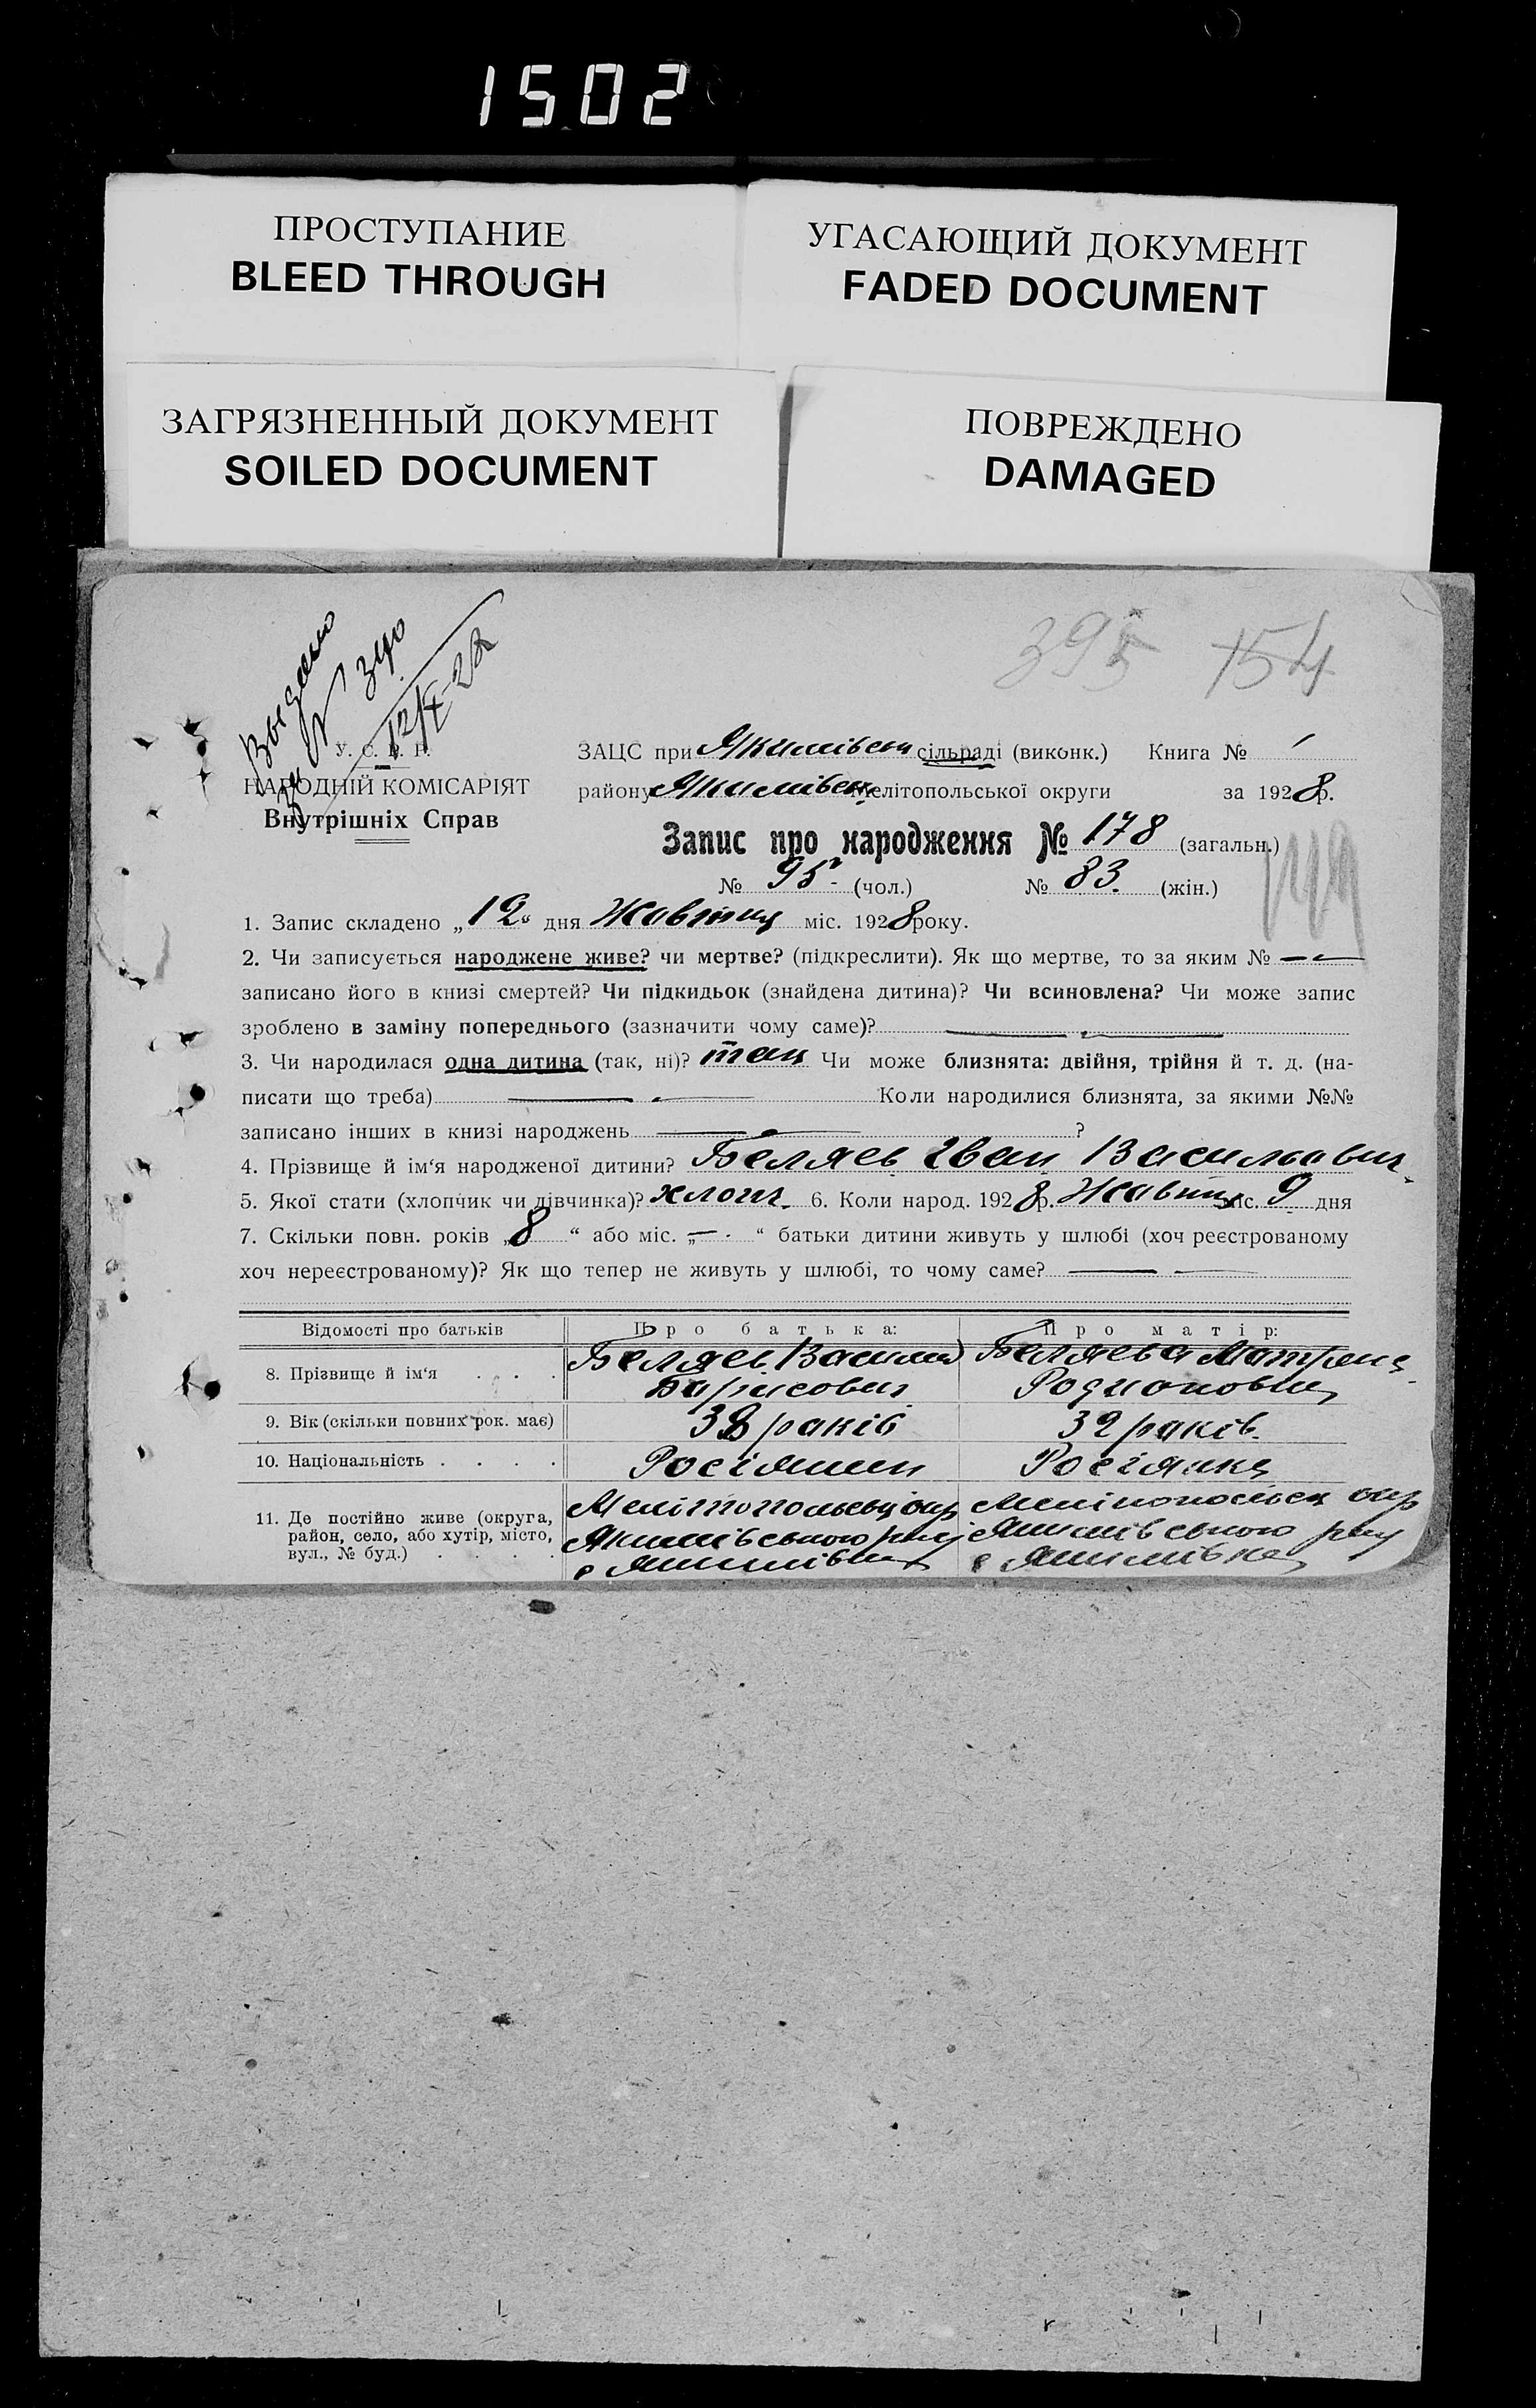 1502
ПРОСТУПАНИЕ
BLEED THROUGH
УГАСАЮЩИЙ ДОКУМЕНТ
FADED DOCUMENT
ЗАГРЯЗНЕННЫЙ ДОКУМЕНТ
SOILED DOCUMENT
ПОВРЕЖДЕНО
DAMAGED
395 154
Выдано
У. С. Р. Р.
НАРОДНІЙ КОМІСАРІЯТ
Внутрішніх Справ
ЗАЦС при Якимівськ сільраді (виконк.) Книга № 1
району Мелітопольської округи за 1928р.
Запис про народження № 178 (загальн.)
№ 95 (чол.) № 83. (жін.)
1. Запис складено „12“ дня Жовтня міс. 1928року.
2. Чи записується народжене живе? чи мертве? (підкреслити). Як що мертве, то за яким № —
записано його в книзі смертей? Чи підкидьок (знайдена дитина)? Чи всиновлена? Чи може запис
зроблено в заміну попереднього (зазначити чому саме)? —
3. Чи народилася одна дитина (так, ні)? так Чи може близнята: двійня, трійня й т. д. (на-
писати що треба) — Коли народилися близнята, за якими №№
записано інших в книзі народжень — ?
4. Прізвище й ім‘я народженої дитини? Беляев Іван Васильович.
5. Якої стати (хлопчик чи дівчинка)? хлопч. 6. Коли народ. 1928р. Жовтня міс. 9 дня
7. Скільки повн. років „8“ або міс. „—“ батьки дитини живуть у шлюбі (хоч реєстрованому
хоч нереєстрованому)? Як що тепер не живуть у шлюбі, то чому саме? —
Відомості про батьків Про батька: Про матір:
8. Прізвище й ім‘я . . . Беляев Василий Беляева Матрена
Барисович Родионовна
9. Вік (скільки повних рок. має) 38 раків 32 раків.
10. Національність . . . . Росіянин Росіянка
11. Де постійно живе (округа, район, село, або хутір, місто, вул., № буд.) . . . .
Мелітопольськ окр Мелітопольск окр
Якимівського рай Якимівського рай
с Якимівка с Якимівка